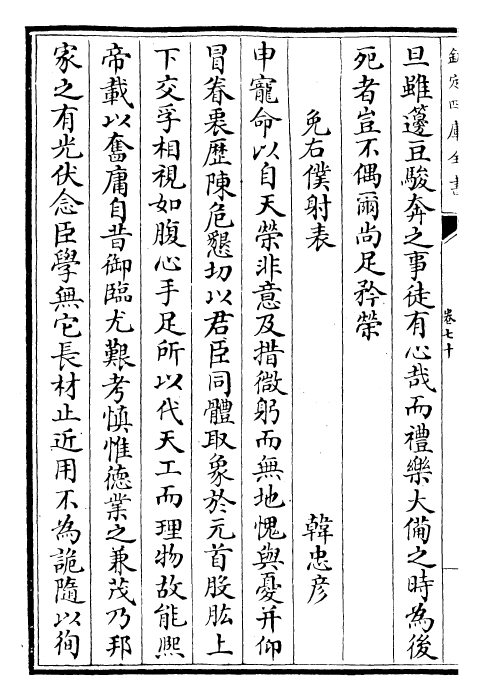 欽定四庫全書
卷七十
旦雖籩豆駿奔之事徒有心哉而禮樂大備之時為後
死者豈不偶爾尚足矜榮
免右僕射表 韓忠彦
申寵命以自天榮非意及措微躬而無地愧與憂并仰
冒眷裏歴陳危懇切以君臣同體取象於元首股肱上
下交孚相視如腹心手足所以代天工而理物故能熙
帝載以奮庸自昔御臨尤艱考慎惟德業之兼茂乃邦
家之有光伏念臣學無它長材止近用不為詭隨以徇